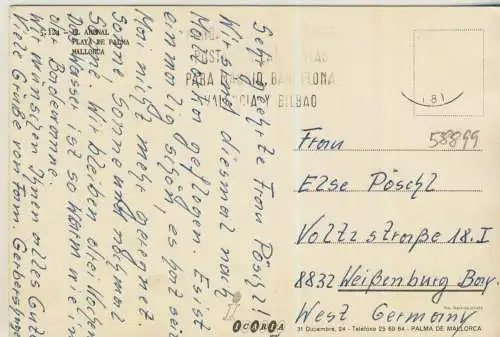 S-128 - EL ARENAL
PLAYA DE PALMA
MALLORCA
PARA MADRID, BARCELONA
VALENCIA Y BILBAO
Sehr geehrte Frau Pöschl!
Wir sind diesmal nach
Mallorka geflogen. Es ist
einmalig schön, es hat seit
Mai nicht mehr geregnet
Sonne Sonne und nochmal
Sonne. Wir bleiben drei Wochen
Das Wasser ist so warm wie in
der Badewanne.
Wir wünschen Ihnen alles Gute
Viele Grüße von Fam. Gerbershagen
58899
Frau
Else Pöschl
Voltzstraße 18.I
8832 Weißenburg Bay.
West Germany
ICARIA
31 Diciembre, 24 - Teléfono 25 69 64 - PALMA DE MALLORCA